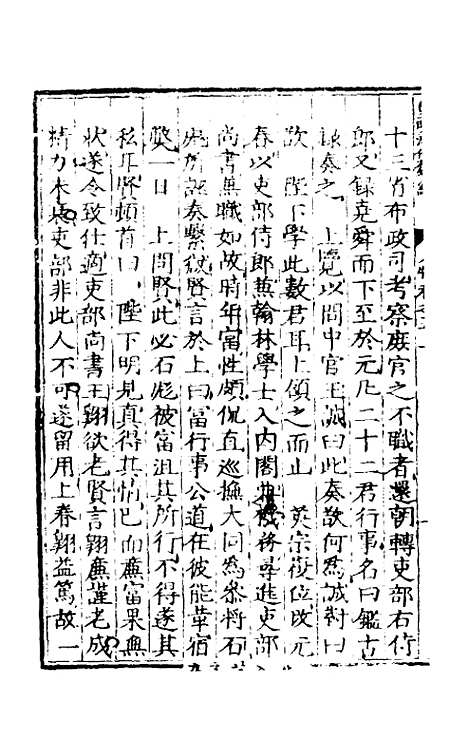 十三省布政司考察庶官之不職者還朝轉吏部右侍
郎又錄堯舜而下至於元凡二十二君行事名曰鑑古
錄奏之　上覽以問中官王誠曰此奏欲何為誠對曰
欲　陛下學此數君耳上頷之而止　英宗復位改元
春以吏部侍郎兼翰林學士入內閣典機務尋進吏部
尚書無職如故時年富性頗侃直巡撫大同為參將石
彪所誣奏繫獄賢言於上曰富行事公道在彼能革宿
弊一日　上問賢此必石彪被富沮其所行不得遂其
私耳賢頓首曰　陛下明見真得其情已而廉富果無
狀遂令致仕適吏部尚書王翱欲老賢言翱廉謹老成
精力未衰吏部非此人不可遂留用上眷翱益篤故一